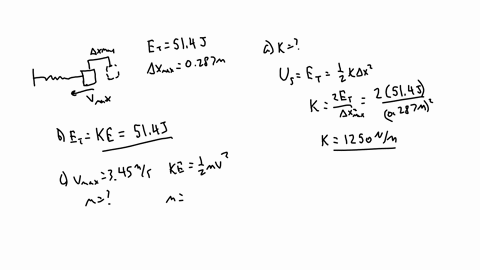 Δxmax
Vmax
E_T = 51.4 J
Δx_max = 0.287m
a) K=?
U_s = E_T = ½ K Δx²
K = 2E_T / Δx²_max = 2(51.4J) / (0.287m)²
K = 1250 N/m
b) E_T = KE = 51.4J
c) V_max = 3.45 m/s KE = ½ mv²
m=? m=